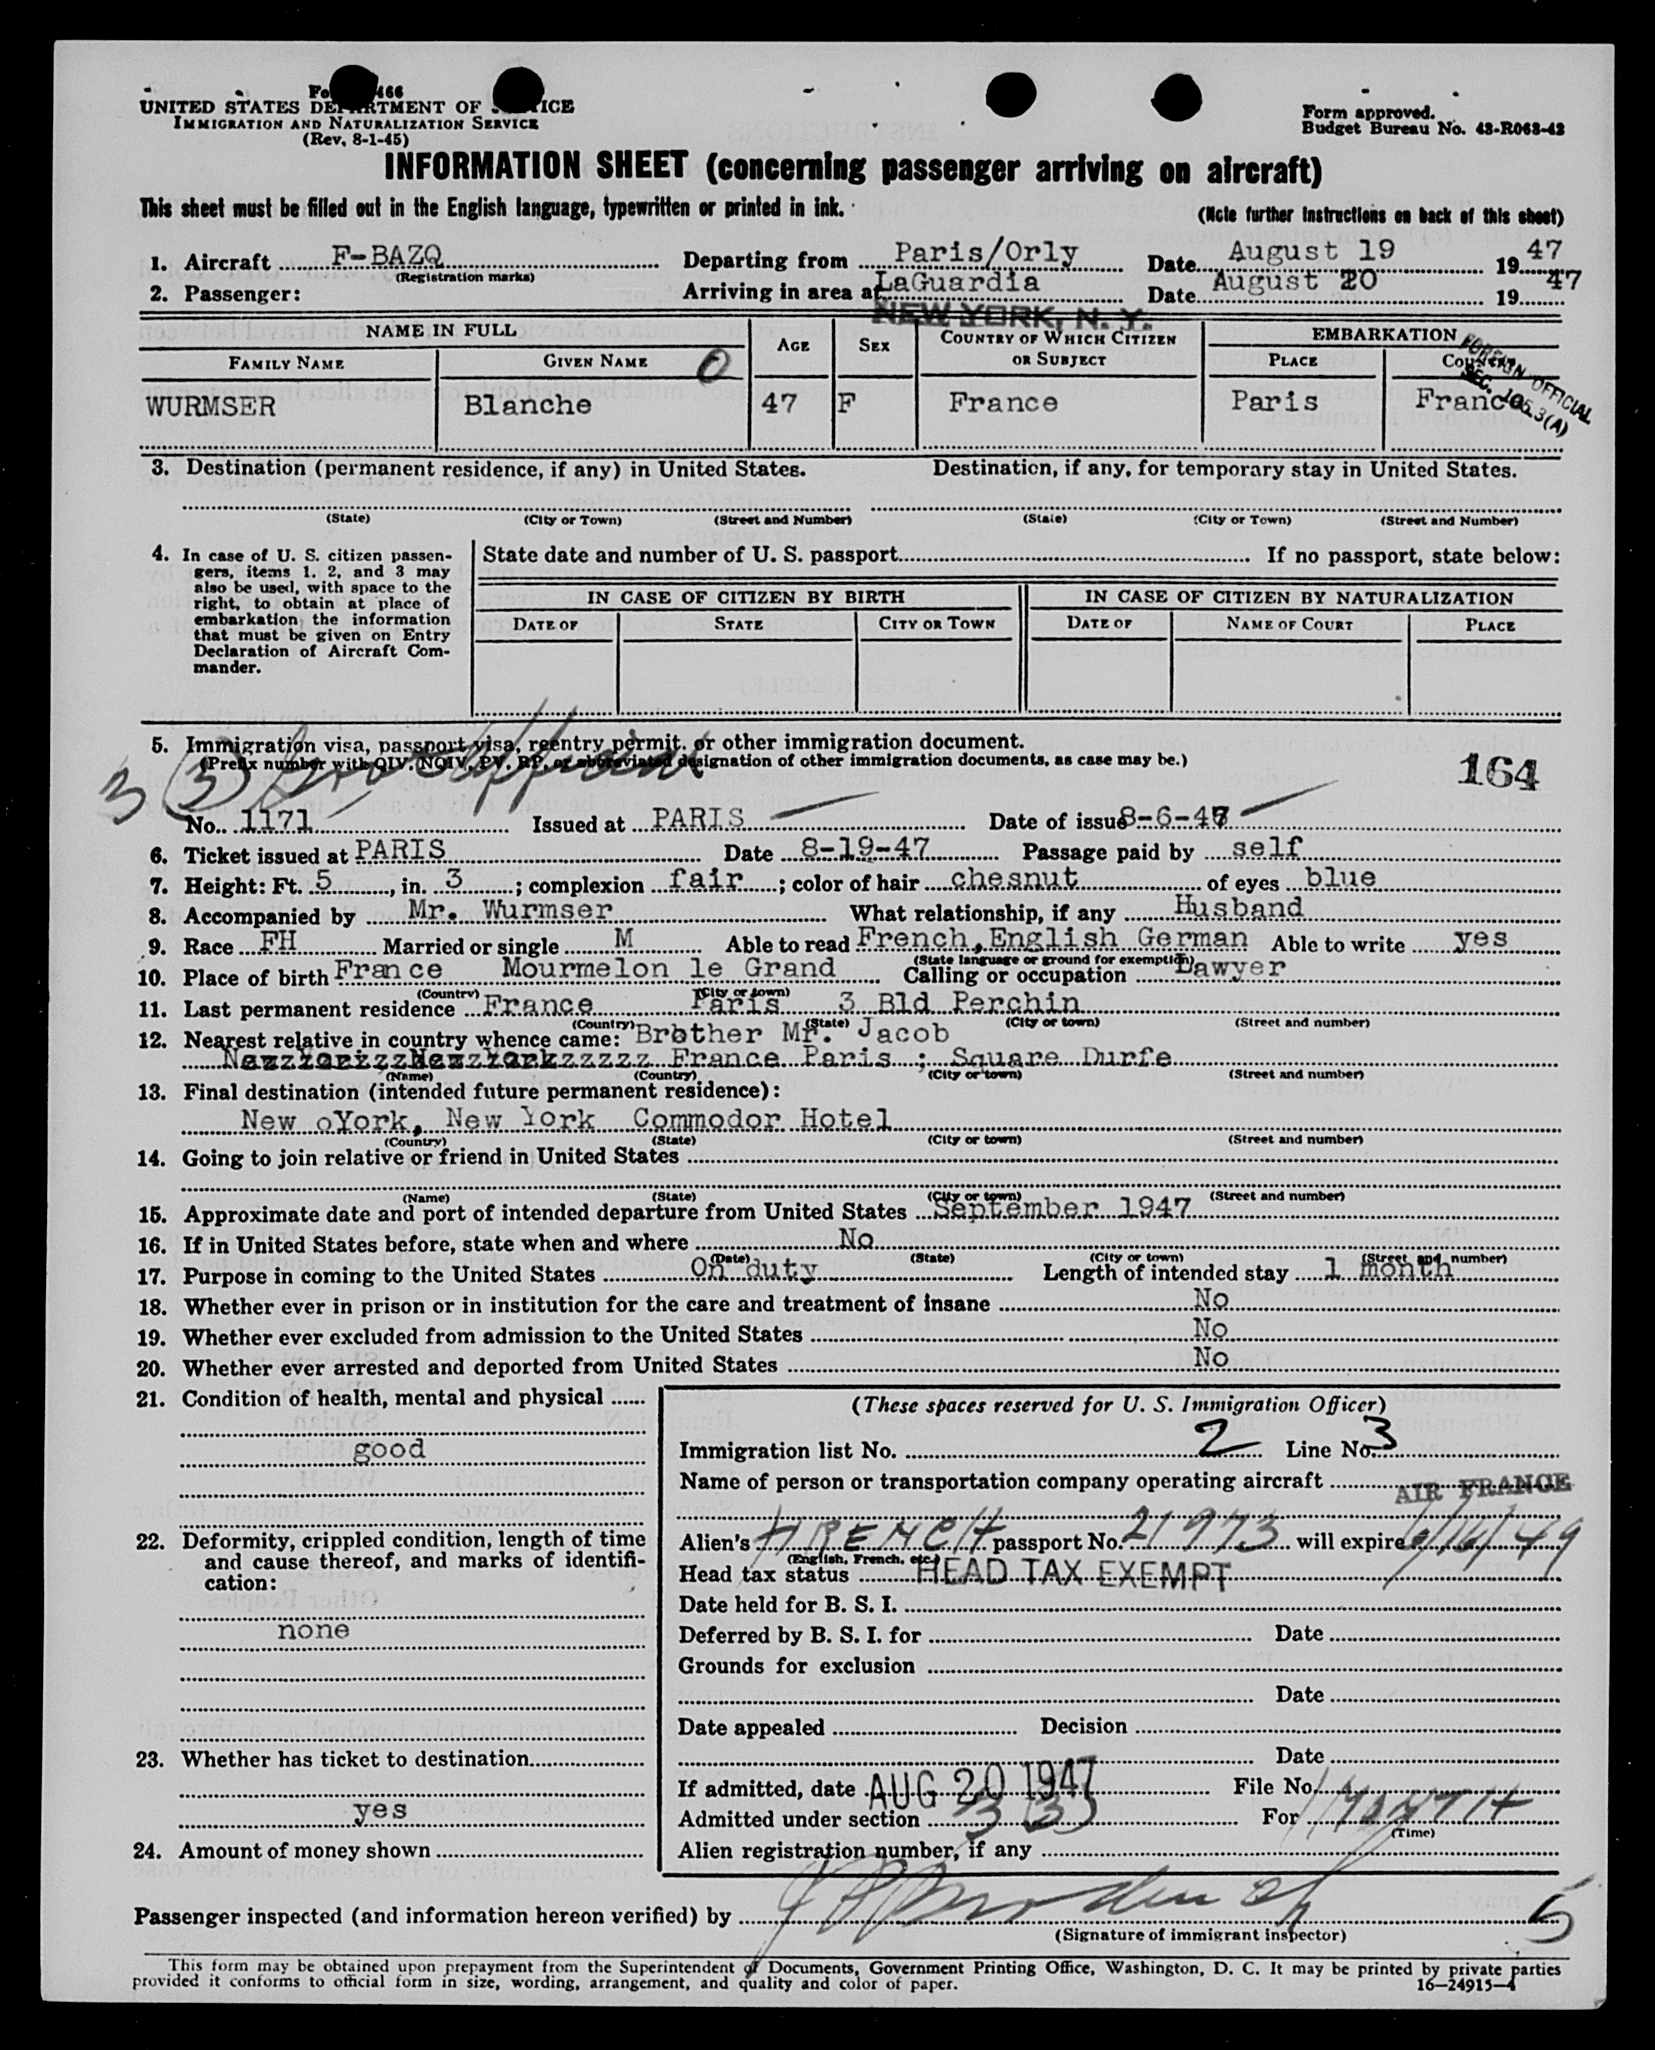 UNITED STATES DEPARTMENT OF JUSTICE
IMMIGRATION AND NATURALIZATION SERVICE
(Rev. 8-1-45)
Form approved.
Budget Bureau No. 43-R063-42
INFORMATION SHEET (concerning passenger arriving on aircraft)
This sheet must be filled out in the English language, typewritten or printed in ink.
(Note further instructions on back of this sheet)
1. Aircraft F-BAZQ Departing from Paris/Orly Date August 19 1947
(Registration marks)
2. Passenger: Arriving in area at LaGuardia Date August 20 1947
NEW YORK, N. Y.
NAME IN FULL AGE SEX COUNTRY OF WHICH CITIZEN OR SUBJECT EMBARKATION
FAMILY NAME GIVEN NAME PLACE COUNTRY
FOREIGN OFFICIAL
SEC. 105.3(A)
WURMSER Blanche 47 F France Paris France
3. Destination (permanent residence, if any) in United States. Destination, if any, for temporary stay in United States.
(State) (City or Town) (Street and Number) (State) (City or Town) (Street and Number)
4. In case of U. S. citizen passengers, items 1, 2, and 3 may also be used, with space to the right, to obtain at place of embarkation the information that must be given on Entry Declaration of Aircraft Commander.
State date and number of U. S. passport If no passport, state below:
IN CASE OF CITIZEN BY BIRTH IN CASE OF CITIZEN BY NATURALIZATION
DATE OF STATE CITY OR TOWN DATE OF NAME OF COURT PLACE
5. Immigration visa, passport visa, reentry permit, or other immigration document.
(Prefix number with QIV, NQIV, PV, RP, or abbreviated designation of other immigration documents, as case may be.)
3 (3)
164
No. 1171 Issued at PARIS Date of issue 8-6-47
6. Ticket issued at PARIS Date 8-19-47 Passage paid by self
7. Height: Ft. 5, in. 3; complexion fair; color of hair chesnut of eyes blue
8. Accompanied by Mr. Wurmser What relationship, if any Husband
9. Race FH Married or single M Able to read French, English German Able to write yes
(State language or ground for exemption)
10. Place of birth France Mourmelon le Grand Calling or occupation Lawyer
(Country) (City or town)
11. Last permanent residence France Paris 3 Bld Perchin
(Country) (State) (City or town) (Street and number)
12. Nearest relative in country whence came: Brother Mr. Jacob
France Paris ; Square Durfe
(Name) (Country) (City or town) (Street and number)
13. Final destination (intended future permanent residence):
New oYork, New York Commodor Hotel
(Country) (State) (City or town) (Street and number)
14. Going to join relative or friend in United States
(Name) (State) (City or town) (Street and number)
15. Approximate date and port of intended departure from United States September 1947
16. If in United States before, state when and where No
(Date) (State) (City or town) (Street and number)
17. Purpose in coming to the United States On duty Length of intended stay 1 month
18. Whether ever in prison or in institution for the care and treatment of insane No
19. Whether ever excluded from admission to the United States No
20. Whether ever arrested and deported from United States No
21. Condition of health, mental and physical
good
22. Deformity, crippled condition, length of time and cause thereof, and marks of identification:
none
23. Whether has ticket to destination
yes
24. Amount of money shown
(These spaces reserved for U. S. Immigration Officer)
Immigration list No. 2 Line No. 3
Name of person or transportation company operating aircraft AIR FRANCE
Alien's FRENCH passport No. 21973 will expire /16/49
(English, French, etc.)
Head tax status HEAD TAX EXEMPT
Date held for B. S. I.
Deferred by B. S. I. for Date
Grounds for exclusion
Date
Date appealed Decision
Date
If admitted, date AUG 20 1947 File No.
Admitted under section 3 (3) For 1 MONTH
(Time)
Alien registration number, if any
Passenger inspected (and information hereon verified) by
(Signature of immigrant inspector)
5
This form may be obtained upon prepayment from the Superintendent of Documents, Government Printing Office, Washington, D. C. It may be printed by private parties
provided it conforms to official form in size, wording, arrangement, and quality and color of paper.
16—24915-4